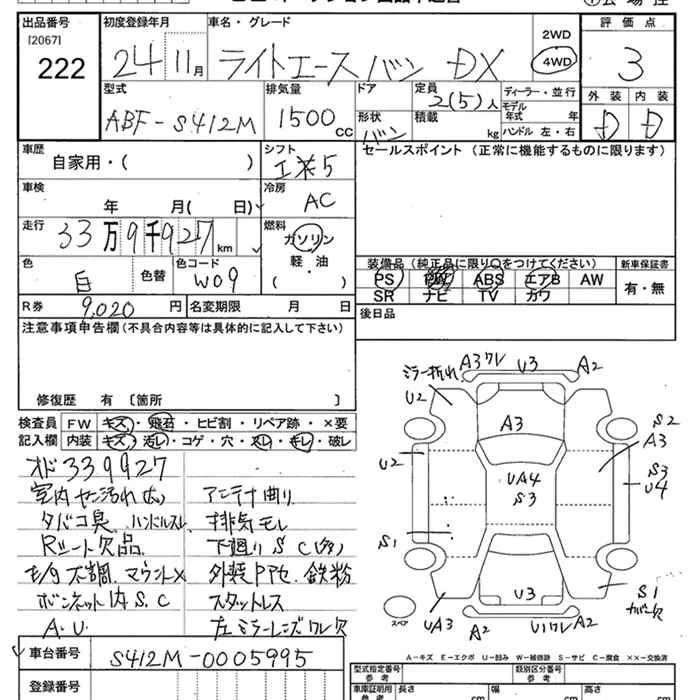 出品番号 初度登録年月 車名・グレード 評価点
[2067] 222 24 11月 ライトエースバン DX 2WD 4WD 3
型式 排気量 ドア 定員 ディーラー・並行 外装 内装
ABF-S412M 1500cc 形状 バン 2(5)人 積載 kg モデル年式 年 ハンドル 左・右 D D
車歴 自家用・( ) シフト セールスポイント(正常に機能するものに限ります)
車検 年 月( 日) 冷房 AC
走行 33万9千927km 燃料 ガソリン 軽・油 ( )
色 白 色替 色コード W09
装備品(純正品に限り○をつけてください) 新車保証書
PS PW ABS エアB AW 有・無
SR ナビ TV カワ
R券 9,020円 名変期限 月 日 後日品
注意事項申告欄(不具合内容等は具体的に記入して下さい)
修復歴 有 〔箇所 〕
検査員 FW キズ・飛石・ヒビ割・リペア跡・×要
記入欄 内装 キズ・汚レ・コゲ・穴・スレ・キレ・破レ
オド339927
アンテナ曲リ
タバコ臭 ハンドルスレ 排気モレ
Rシート欠品 下廻りSC(多)
不調 マウント× 外装 鉄粉
ボンネット内S.C スタットレス
A.U 左ミラーレンズワレ欠
ミラー折れ A3ワレ U3 A2
U2 A3 S2
A3
U2 UA4 S3 S3
U4
S1
U3 S1
スペア UA3 A2 U1ワレ欠 A2
A-キズ E-エクボ U-凹み W-補修跡 S-サビ C-腐食 ××-交換済
車台番号 S412M-0005995
登録番号
型式指定番号 参考 類別区分番号 参考
車庫証明用 参考 長さ cm 幅 cm 高さ cm